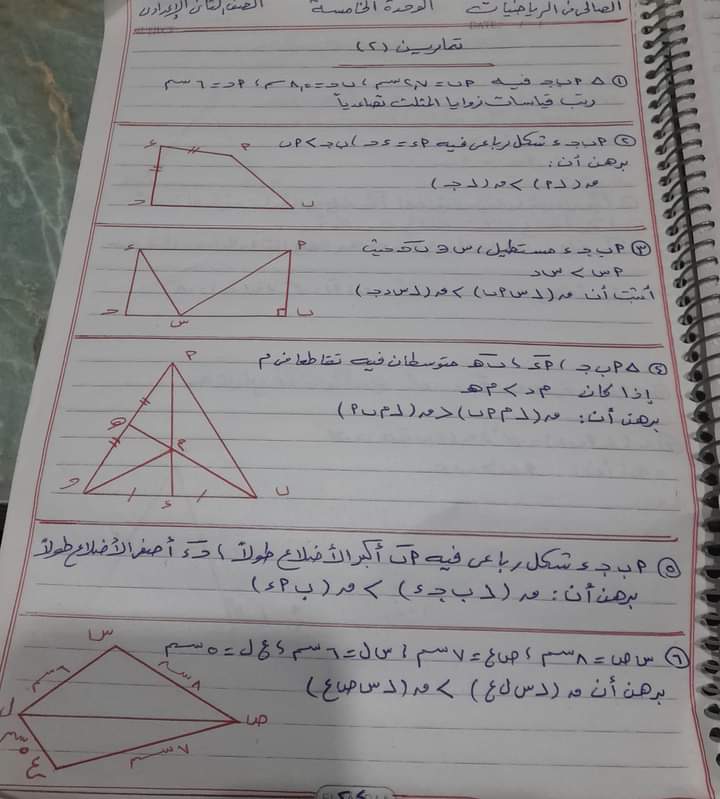 الصالح في الرياضيات الوحدة الخامسة الصف الثاني الإعدادى
تمارين (٢)
① △ ٢ ب ج فيه ٢ب = ٢,٧ سم ، ب ج = ٨,٠ سم ، ٢ج = ٦ سم
رتب قياسات زوايا المثلث تصاعدياً
② ٢ ب ج ء شكل رباعى فيه ٢ء = ء ج ، ب ج > ٢ب
برهن أن :
ق (∠ ٢) > ق (∠ ج)
ء ٢ ج ب
③ ٢ ب ج ء مستطيل ، س ∈ ب ج حيث
٢س > س ء
أثبت أن ق (∠ س ٢ ب) > ق (∠ س ء ج)
ء ٢ ج س ب
④ △ ٢ ب ج ، ٢ء ، ب ه متوسطان فيه تقاطعا فى م
إذا كان م ء > م ه
برهن أن : ق (∠ م ٢ ب) < ق (∠ م ب ٢)
٢ ه م ج ء ب
⑤ ٢ ب ج ء شكل رباعى فيه ٢ب أكبر الأضلاع طولاً ، ج ء أصغر الأضلاع طولاً
برهن أن : ق (∠ ب ج ء) > ق (ب ٢ ء)
⑥ س ص = ٨ سم ، ص ع = ٧ سم ، س ل = ٦ سم ، ع ل = ٥ سم
برهن أن ق (∠ س ل ع) > ق (∠ س ص ع)
س ٦ سم ٨ سم ل ص ٥ سم ٧ سم ع